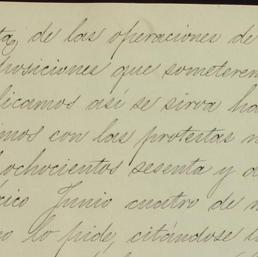 ta, de las operaciones de
posiciones que someterem
licamos así se sirva ha
imos con las protestas n
ochocientos sesenta y d
ico Junio cuatro de m
lo pide, citándose